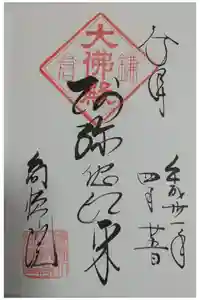 奉拝
大佛殿
鎌倉
阿弥陀如来
平成廿一年
四月廿日
高徳院